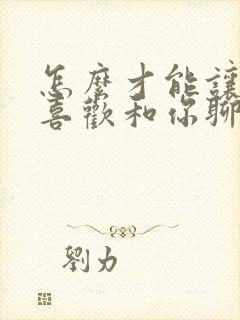 怎麼才能讓
喜歡和你聊
劉力